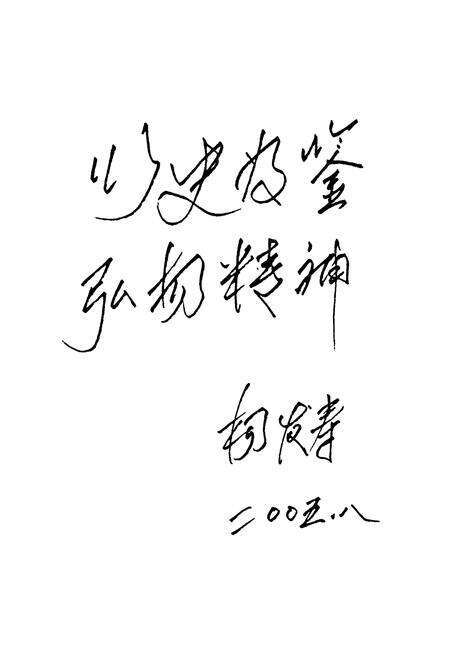 以史为鉴
弘扬精神
柯发寿
二〇〇五.八